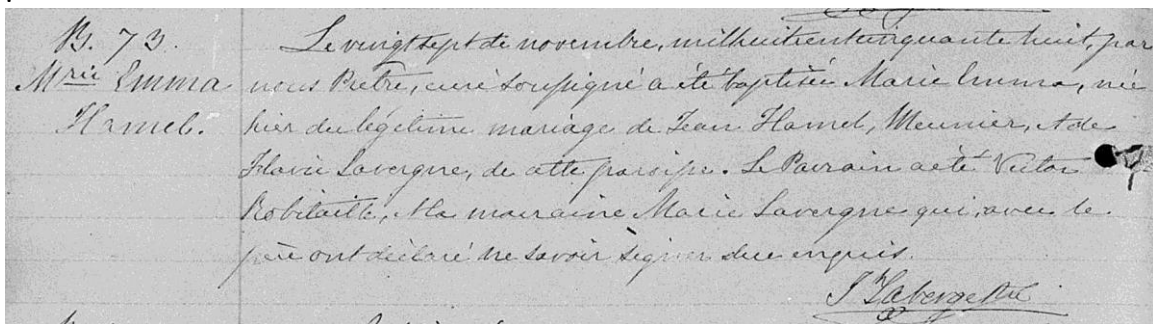 B. 73.
Mrie Emma
Hamel.
Le vingt sept de novembre, mil huit cent cinquante huit, par
nous Prêtre, curé soussigné a été baptisée Marie Emma, née
hier du légitime mariage de Jean Hamel, Meunier, et de
Flavie Lavergne, de cette paroisse. Le Parrain a été Victor
Robitaille, et la marraine Marie Lavergne qui, avec le
père ont déclaré ne savoir signer de ce enquis.
J Laberge Ptre